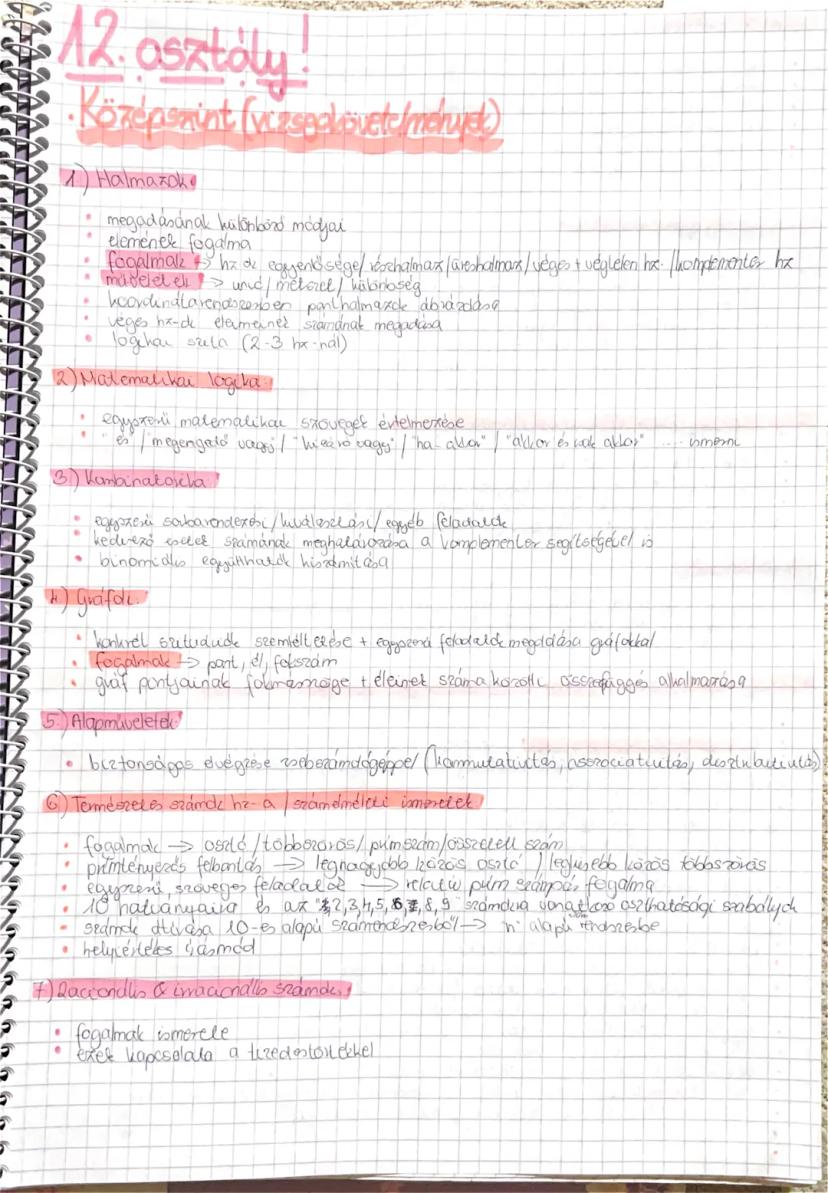 12. osztály!
• Középszint (vizsgakövetelmények)
1) Halmazok
• megadásának különböző módjai
• elemének fogalma
• fogalmak → hx-ok egyenlősége/részhalmax/üreshalmax/véges + végtelen hx. /komplementer hx
• műveletek → unió/metszet/különbség
• koordinátarendszerben ponthalmazok ábrázolása
• véges hx-ok elemeinek számának megadása
• logikai szita (2-3 hx-nál)
2) Matematikai logika
• egyszerű matematikai szövegek értelmezése
• "és"/"megengedő vagy"/"kizáró vagy"/"ha akkor"/"akkor és csak akkor" .... ismerni
3.) Kombinatorika
• egyszerű sorbarendezési/kiválasztási/egyéb feladatok
• kedvező esetek számának meghatározása a komplementer segítségével is
• binomiális együtthatók kiszámítása
4.) Gráfok
• konkrét szituációk szemléltetése + egyszerű feladatok megoldása gráfokkal
• fogalmak → pont, él, fokszám
• gráf pontjainak fokszámösszege + éleinek száma közötti összefüggés alkalmazása
5.) Alapműveletek
• biztonságos elvégzése zsebszámológéppel (kommutativitás, asszociativitás, disztributivitás)
6) Természetes számok hz-a / számelméleti ismeretek
• fogalmak → osztó/többszörös/prímszám/összetett szám
• prímtényezős felbontás → legnagyobb közös osztó / legkisebb közös többszörös
• egyszerű szöveges feladatok → relatív prím számpár fogalma
• 10 hatványaira és az "2,3,4,5,6,8,9" számokra vonatkozó oszthatósági szabályok
• számok átírása 10-es alapú számrendszerből → "n" alapú rendszerbe
• helyiértékes írásmód
7) Racionális & irracionális számok
• fogalmak ismerete
• ezek kapcsolata a tizedestörtekkel